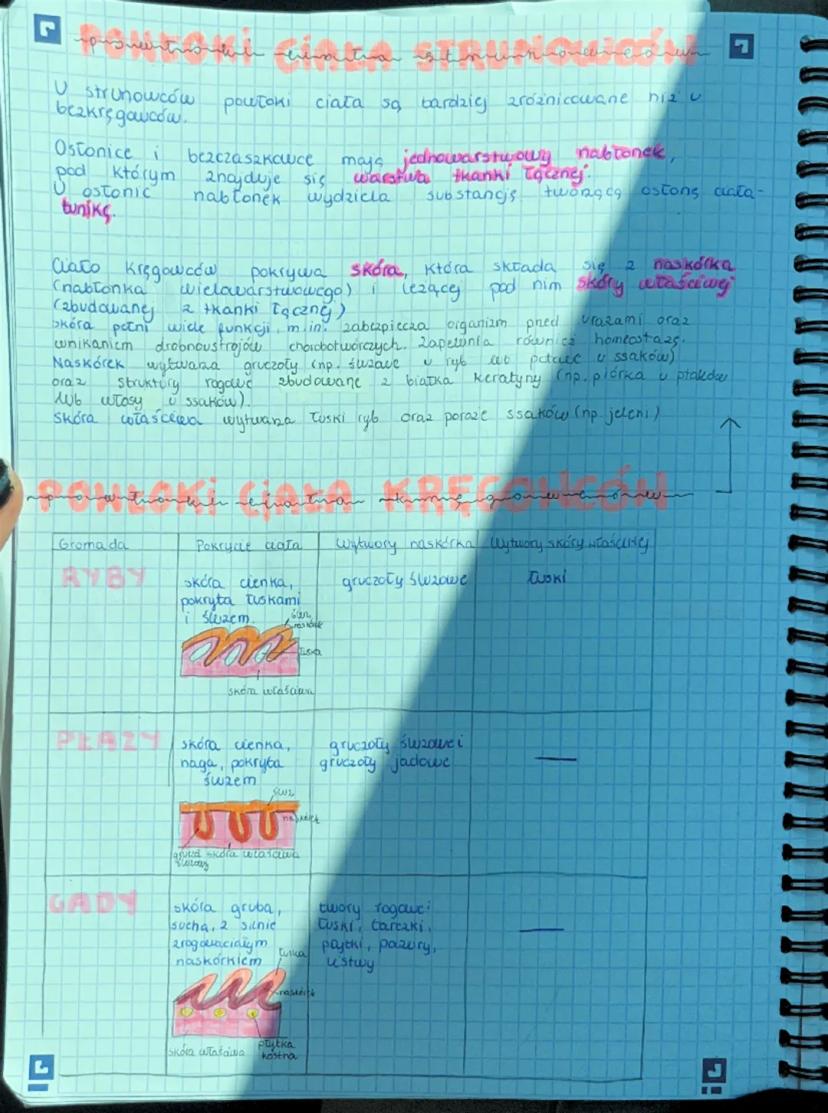 POWŁOKI CIAŁA STRUNOWCÓW
U strunowców powłoki ciała są bardziej zróżnicowane niż u
bezkręgowców.
Osłonice i bezczaszkowce mają jednowarstwowy nabłonek,
pod którym znajduje się warstwa tkanki łącznej.
U osłonic nabłonek wydziela substancję tworzącą osłonę ciała-
tunikę.
Ciało kręgowców pokrywa skóra, która składa się z naskórka
(nabłonka wielowarstwowego) i leżącej pod nim skóry właściwej
(zbudowanej z tkanki łącznej)
Skóra pełni wiele funkcji, m.in. zabezpiecza organizm przed urazami oraz
wnikaniem drobnoustrojów chorobotwórczych. Zapewnia również homeostazę.
Naskórek wytwarza gruczoły (np. śluzowe u ryb lub potowe u ssaków)
oraz struktury rogowe zbudowane z białka keratyny (np. piórka u ptaków
lub włosy u ssaków).
Skóra właściwa wytwarza łuski ryb oraz poroże ssaków (np. jeleni)
POWŁOKI CIAŁA KRĘGOWCÓW
Gromada Pokrycie ciała Wytwory naskórka Wytwory skóry właściwej
RYBY skóra cienka, gruczoły śluzowe łuski
pokryta łuskami
i śluzem.
śluz
naskórek
łuska
skóra właściwa
PŁAZY skóra cienka, gruczoły śluzowe i —
naga, pokryta gruczoły jadowe
śluzem
śluz
naskórek
gruczoł skóra właściwa
śluzowy
GADY skóra gruba, twory rogowe: —
sucha, z silnie łuski, tarczki,
zrogowaciałym płytki, pazury,
naskórkiem
łuska
naskórek
skóra właściwa płytka
kostna